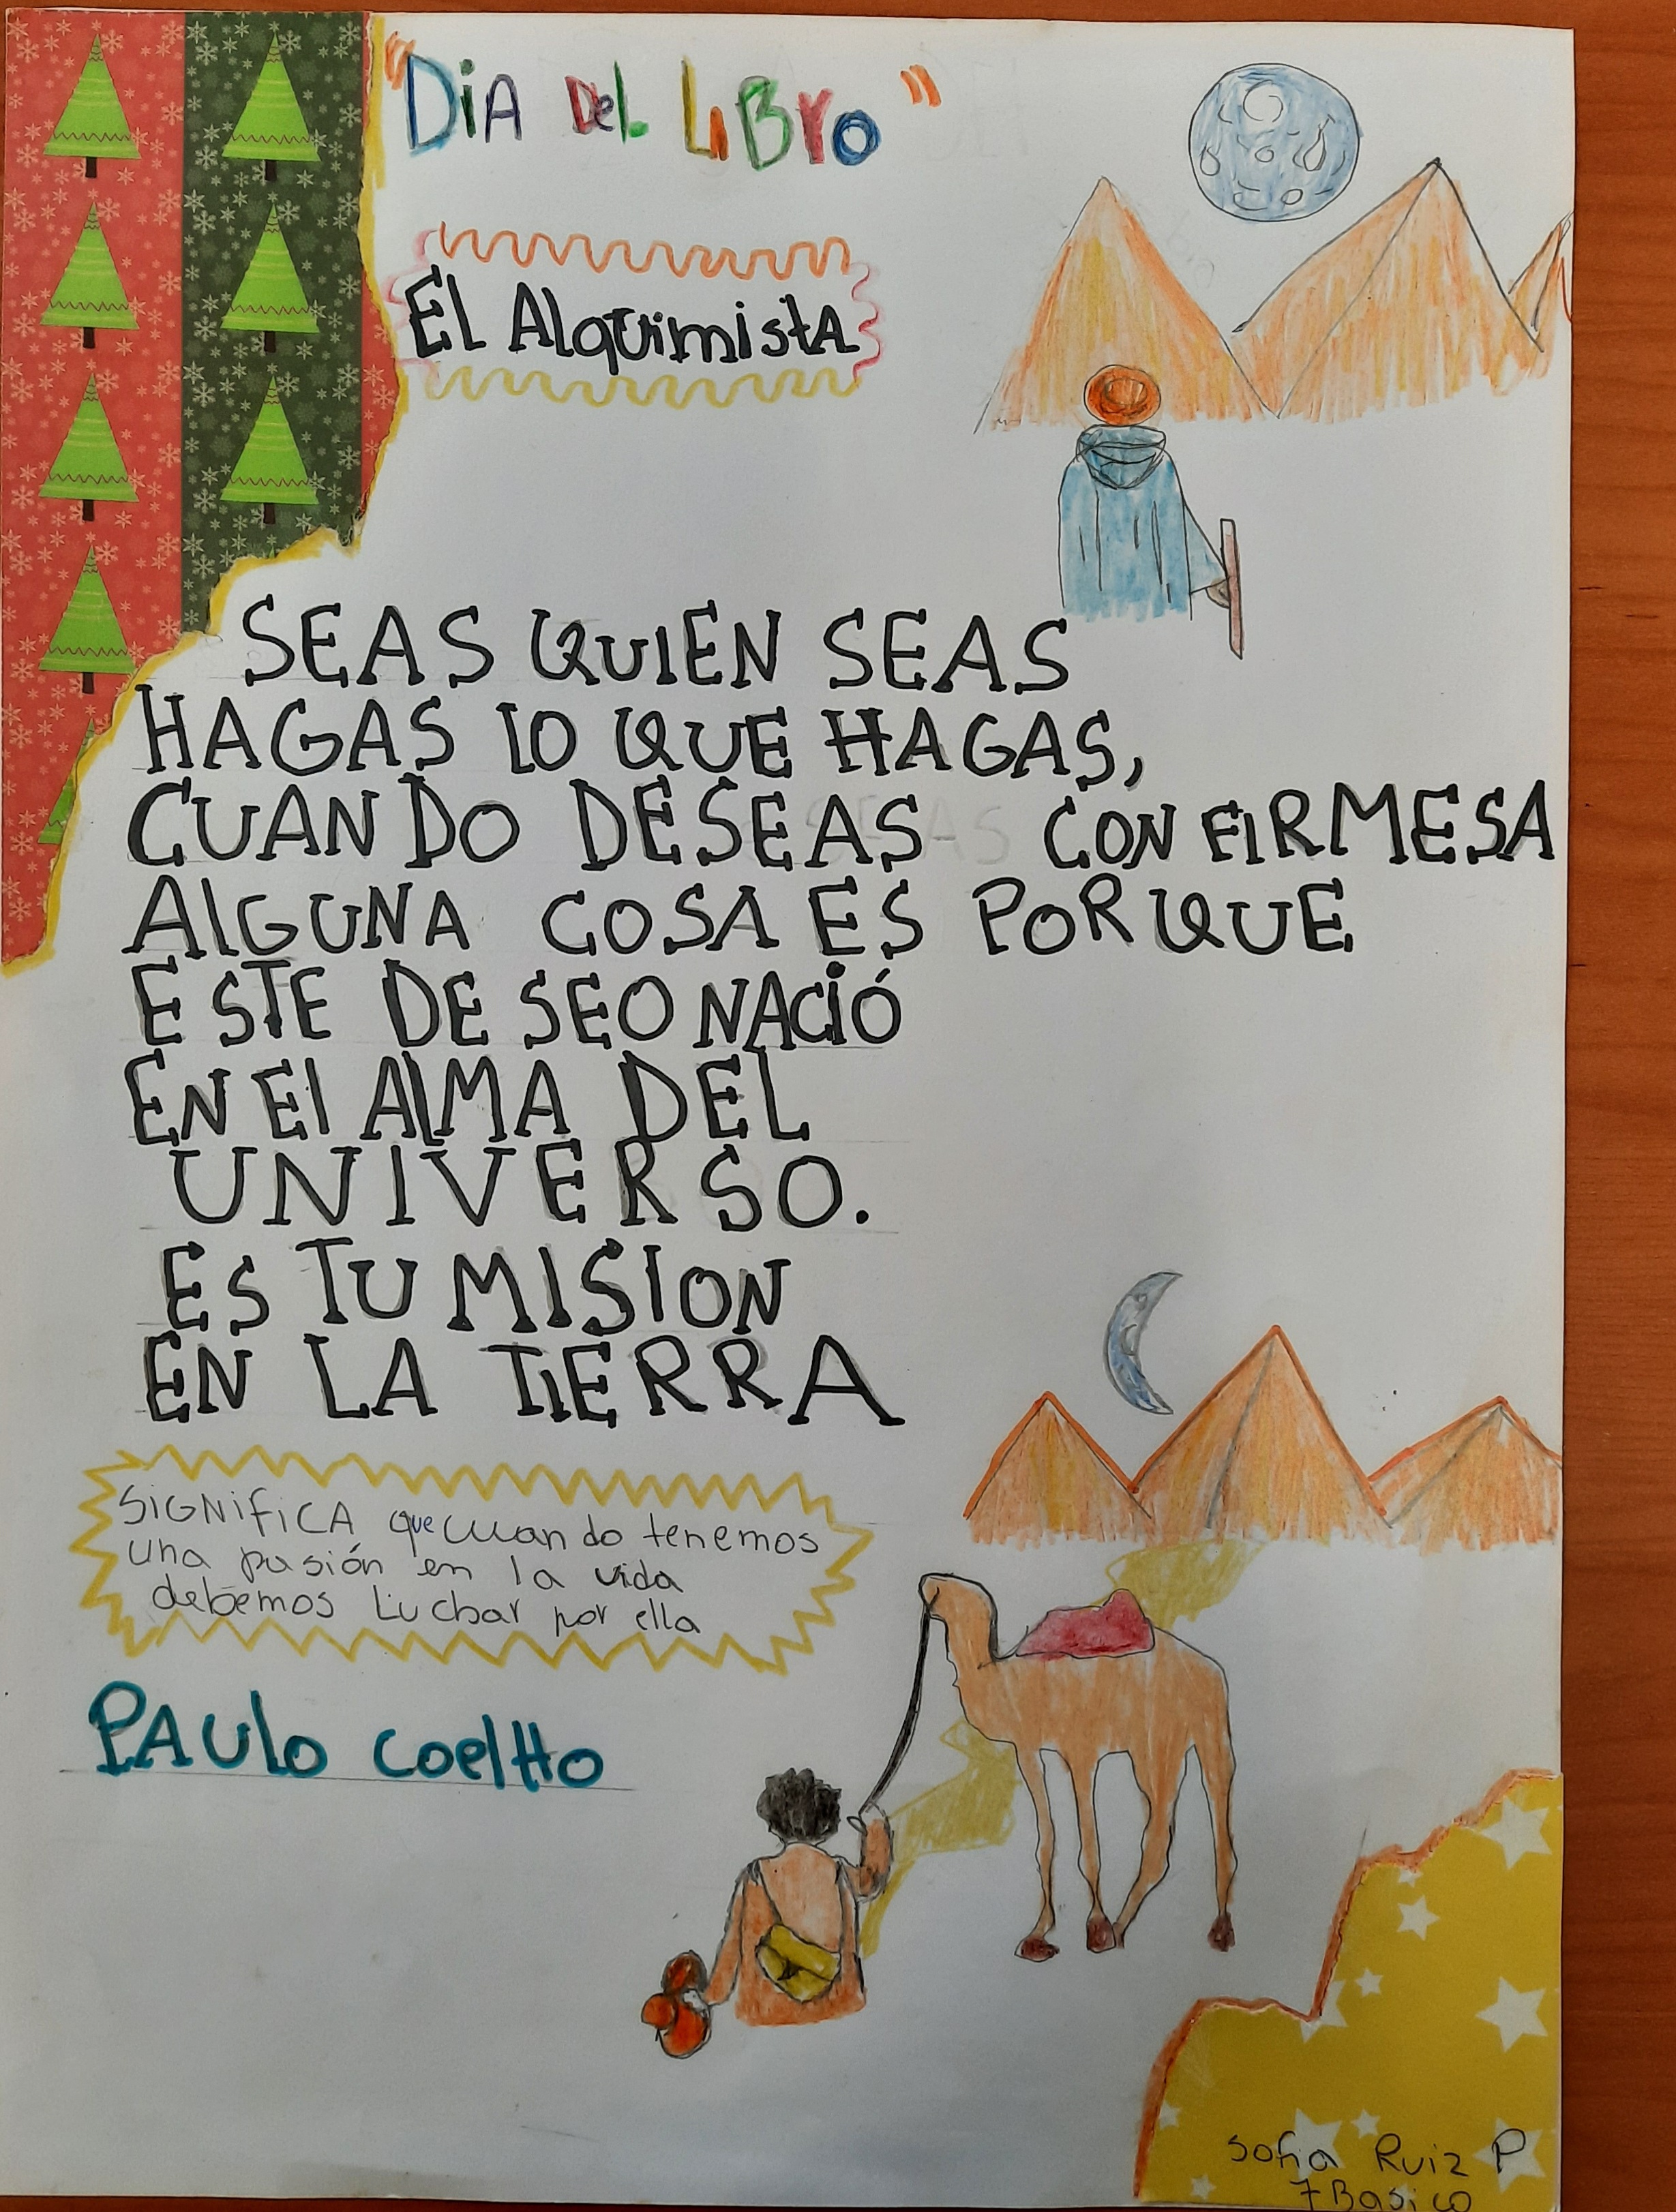 "DiA Del LiBro"
El AlquimistA
SEAS QUIEN SEAS
HAGAS lO QUE HAGAS,
CUANDO DESEAS CON FIRMESA
AlGUNA COSA ES PORQUE
ESTE DESEO NACiÓ
EN El AlMA DEL
UNIVERSO.
ES TU MISION
EN LA TiERRA
SiGNifiCA que cuando tenemos
una pasión en la vida
debemos Luchar por ella
PAUlo CoelHo
Sofia Ruiz P
7 Basico